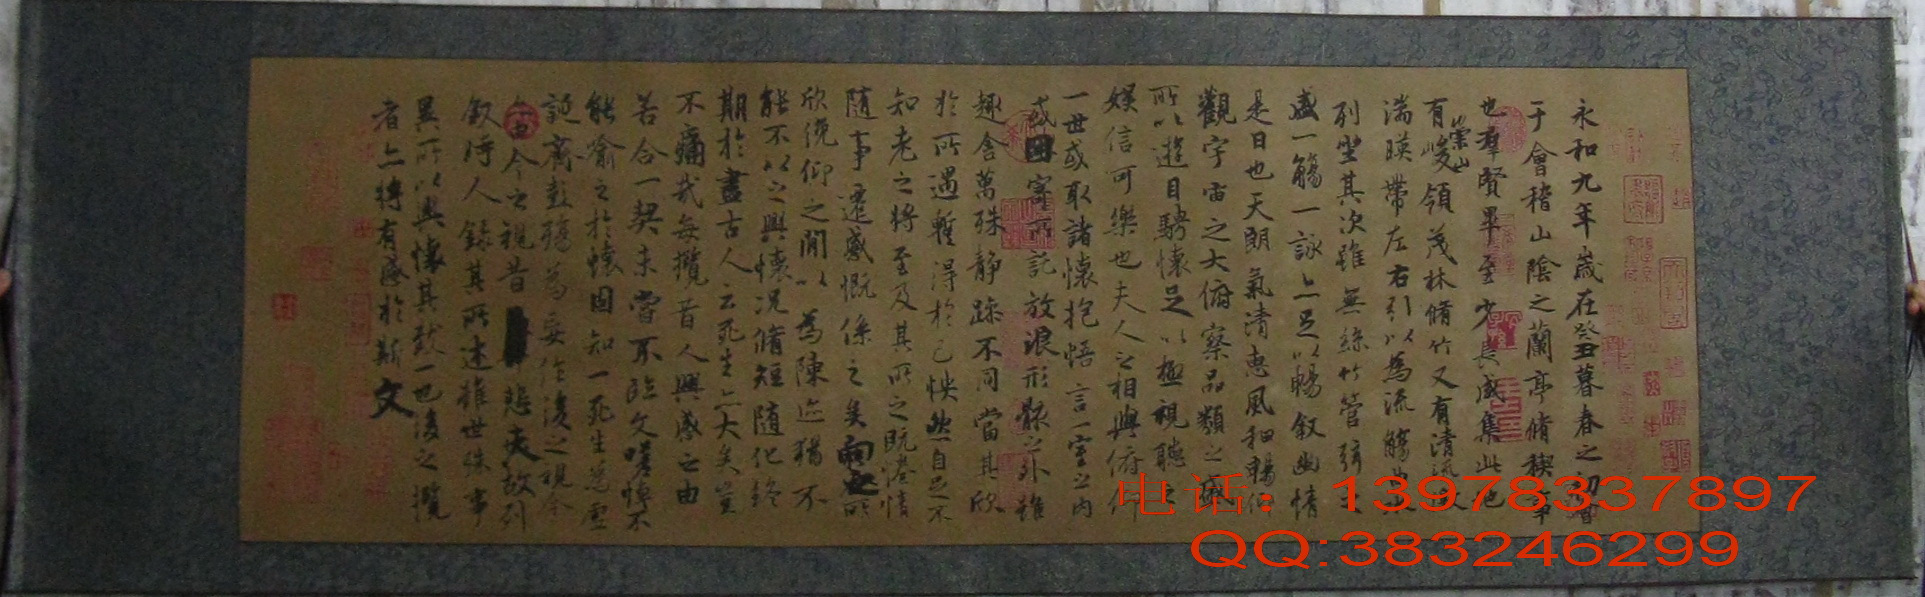 永和九年歲在癸丑暮春之初會
于會稽山陰之蘭亭脩稧事
也羣賢畢至少長咸集此地
有崇山峻領茂林脩竹又有清流激
湍暎帶左右引以為流觴曲水
列坐其次雖無絲竹管弦之
盛一觴一詠亦足以暢敘幽情
是日也天朗氣清惠風和暢仰
觀宇宙之大俯察品類之盛
所以遊目騁懷足以極視聽之
娛信可樂也夫人之相與俯仰
一世或取諸懷抱悟言一室之內
或因寄所託放浪形骸之外雖
趣舍萬殊静躁不同當其欣
於所遇蹔得於己怏然自足不
知老之將至及其所之既惓情
隨事遷感慨係之矣向之所
欣俛仰之閒以為陳迹猶不
能不以之興懷況脩短隨化終
期於盡古人云死生亦大矣豈
不痛哉每攬昔人興感之由
若合一契未嘗不臨文嗟悼不
能喻之於懷固知一死生為虛
誕齊彭殤為妄作後之視今
亦由今之視昔悲夫故列
敘時人錄其所述雖世殊事
異所以興懷其致一也後之攬
者亦將有感於斯文
电话：13978337897
QQ:383246299